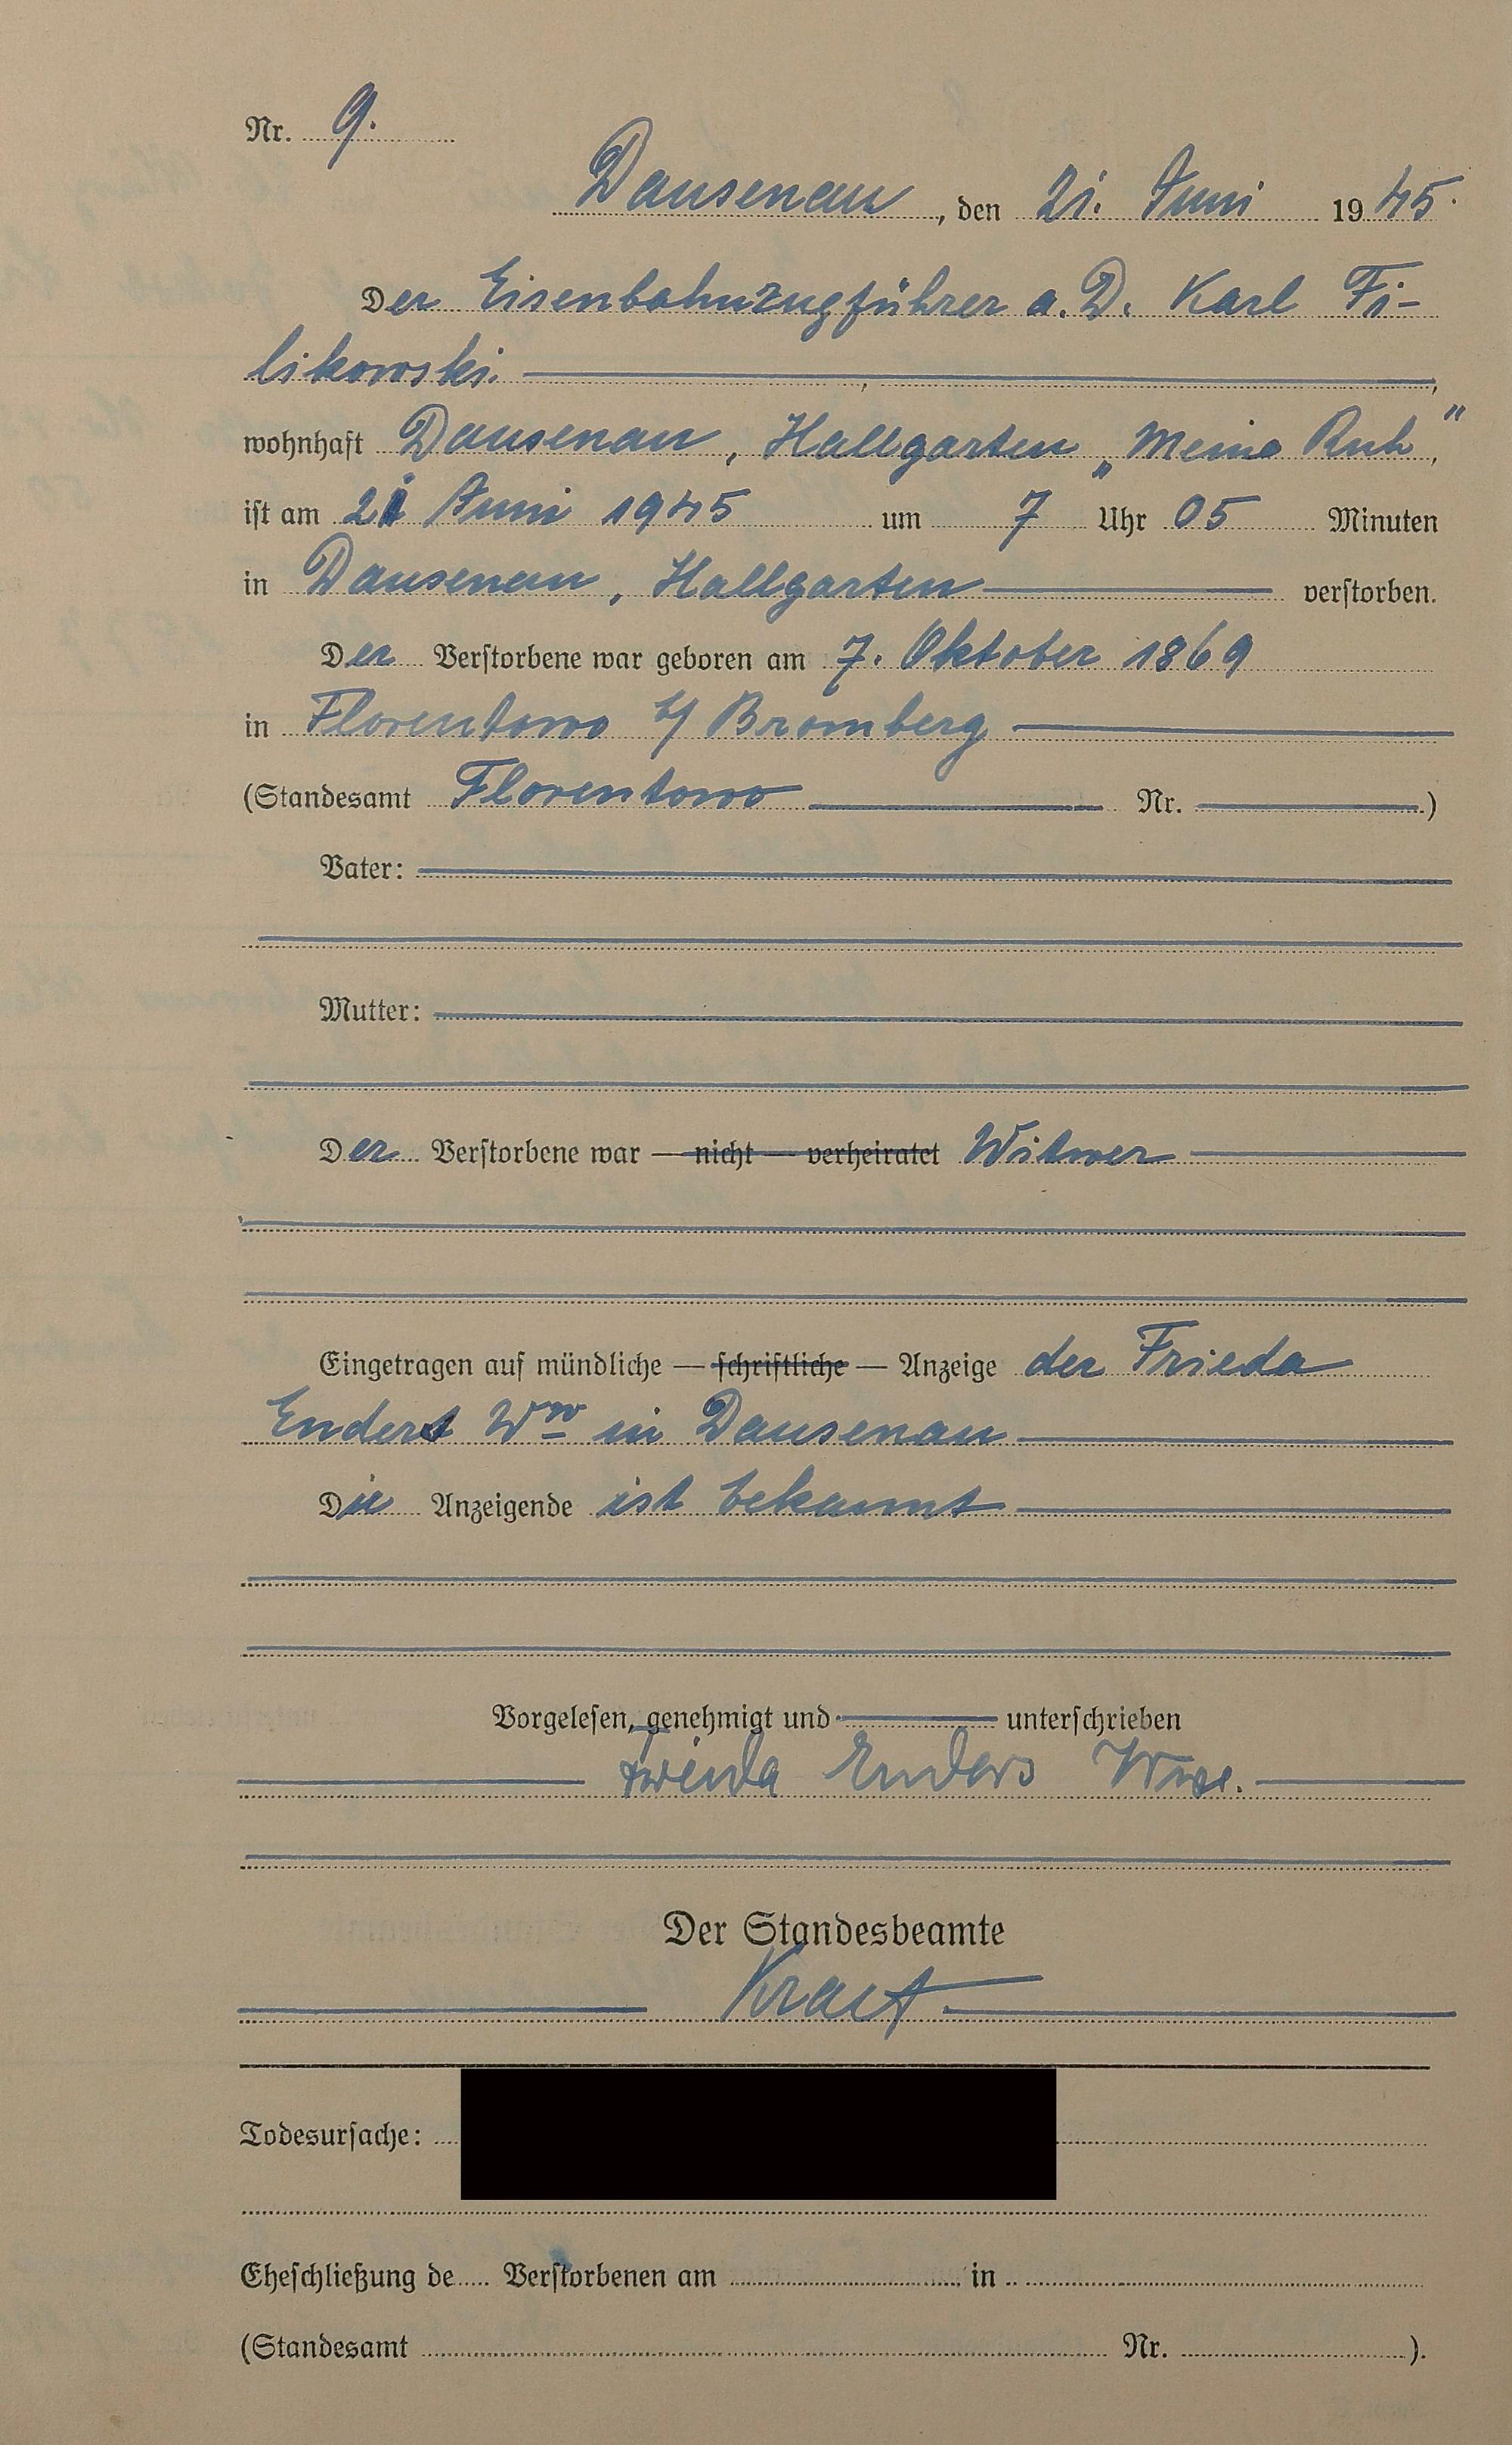 Nr. 9.
Dausenau, den 21. Juni 1945.
Der Eisenbahnzugführer a. D. Karl Fi-
likowski.
wohnhaft Dausenau, Hallgarten „Meine Ruh",
ist am 21 Juni 1945 um 7 Uhr 05 Minuten
in Dausenau, Hallgarten verstorben.
Der Verstorbene war geboren am 7. Oktober 1869
in Florentowo b/ Bromberg
(Standesamt Florentowo Nr. )
Vater:
Mutter:
Der Verstorbene war — nicht — verheiratet Witwer
Eingetragen auf mündliche — schriftliche — Anzeige der Frieda
Enders Ww in Dausenau
Die Anzeigende ist bekannt
Vorgelesen, genehmigt und unterschrieben
Frieda Enders Wwe.
Der Standesbeamte
Kraft
Todesursache:
Eheschließung de Verstorbenen am in
(Standesamt Nr. ).